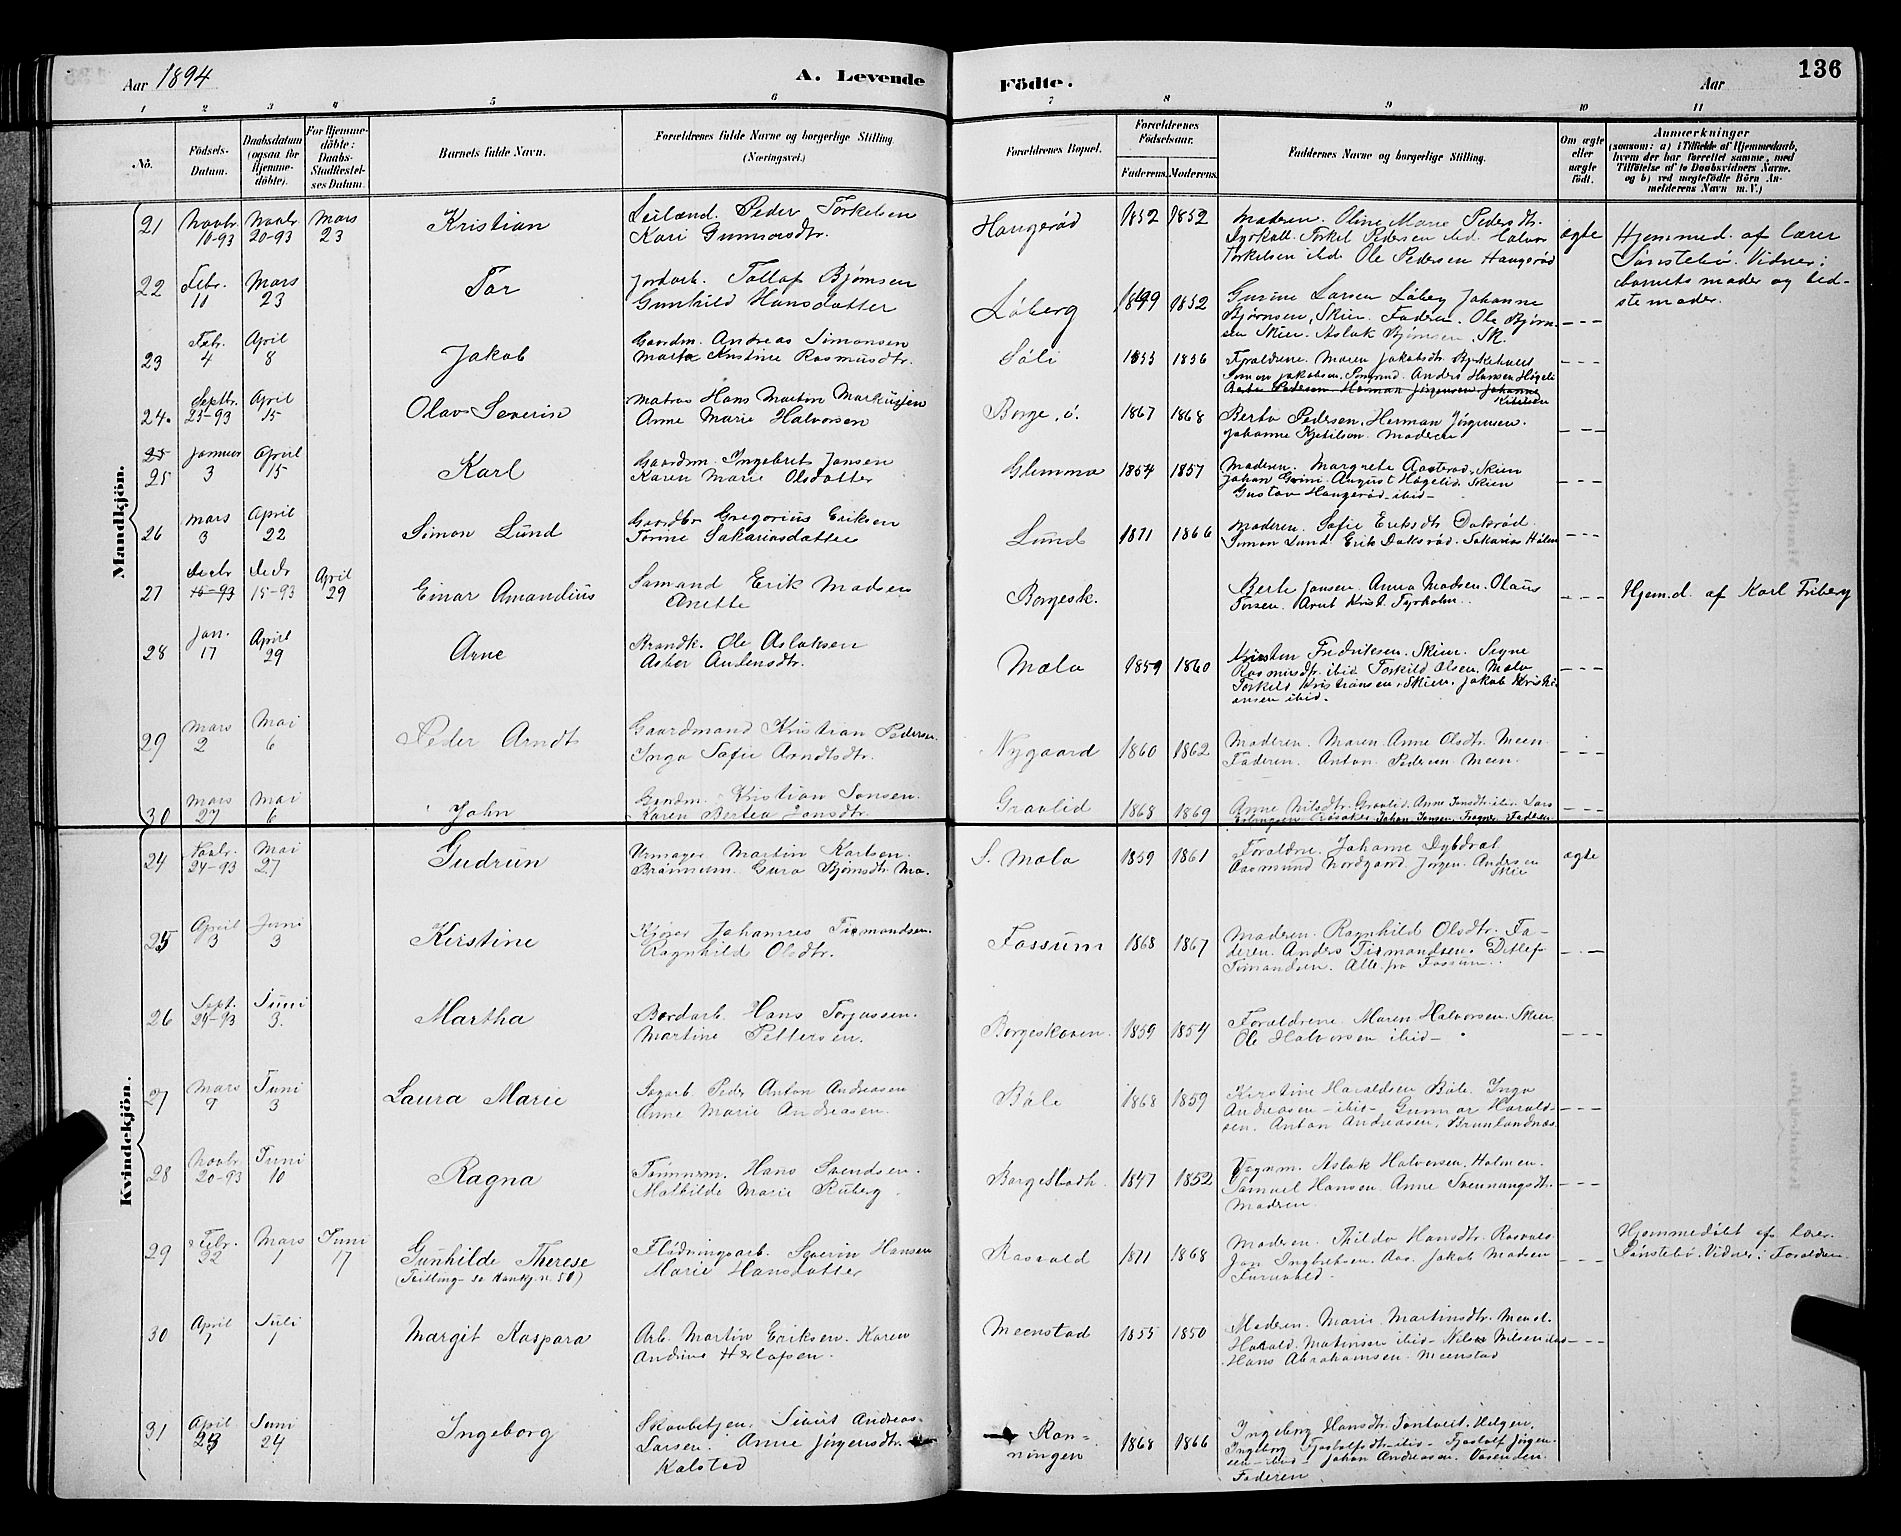 Aar 1894
A. Levende
Födte.
Aar
136
1 2 3 4 5 6 7 8 9 10 11
No.
Födsels-Datum.
Daabsdatum (ogsaa for Hjemmedöbte).
For Hjemmedöbte: Daabs-Stadfæstelses Datum.
Barnets fulde Navn.
Forældrenes fulde Navne og borgerlige Stilling (Næringsvei.)
Forældrenes Bopæl.
Forældrenes Födselsaar.
Faderens. Moderens.
Faddernes Navne og borgerlige Stilling.
Om ægte eller uægte födt.
Anmærkninger
(saasom: a) i Tilfælde af Hjemmedaab, hvem der har forrettet samme, med Tilföielse af to Daabsvidners Navne. og b) ved uægtefödte Börn Anmelderens Navn m. V.)
Mandkjön.
21 Novbr. 10-93 Novbr. 20-93 Mars 23 Kristian
Leilænd. Peder Torkelsen
Kari Gunnarsdtr.
Haugeröd 1852 1852
Moderen. Oline Marie Pedersdtr.
Torkil Pedersen ibd. Halvor
Torkelsen ibd Ole Pedersen Haugeröd
ægte
Hjemmed. af lærer
Sönstebö. Vidner:
barnets moder og bed-
stemoder.
22 Febr. 11 Mars 23 Tor
Jordarb. Tollof Björnsen
Gunhild Hansdatter
Löberg 1849 1852
Gurine Larsen Löberg Johanne
Bjørnsen, Skien. Faderen. Ole Bjørn-
sen Skien. Aslak Bjørnsen. Sk.
23 Febr. 4 April 8 Jakob
Gaardm. Andreas Simonsen
Marta Kristine Rasmusdtr.
Söli 1855 1856
Forældrene. Maren Jakobsdtr.
Simon Jakobsen. Anders Hansen Högeli
24. Septbr. 23-93 April 15 Olav Severin
Matros Hans Martin Markussen
Anne Marie Halvorsen
Borge, ö. 1867 1868
Berta Pedersen. Herman Jörgensen.
Johanne Kjetilsen. Moderen
25 Januar 3 April 15 Karl
Gaardm. Ingebret Jansen
Karen Marie Olsdatter
Glemma 1854 1857
Moderen. Margrete Aasteröd, Skien
Johan August Högelid. Skien
Gustav Haugeröd - ibid -
26 Mars 3 April 22 Simon Lund
Gregorius Eriksen
Torine Sakariasdatter
Lund 1871 1866
Moderen. Sofie Eriksdtr. Doksröd.
Simon Lund. Erik Doksröd. Sakarias
27 Decbr. 15-93 Decbr 15-93 April 29 Einar Amandius
Sömand Erik Madsen
Anette
Borgesk.
Berte Jansen. Anna Madsen. Olaus
Kjem.d. af Karl Friberg
28 Jan. 17 April 29 Arne
Ole Aslaksen
Andersdtr.
Mæla 1859 1860
Kirsten Fredriksen. Skien. Signe
Rasmusdtr. ibid Torkild Olsen. Mæla
Torkild Kristiansen. Skien. Jakob Kristi-
ansen ibid.
29 Mars 2 Mai 6 Peder Arndt
Gaardmand Kristian Pedersen
Inga Sofie Arndtsdtr.
Nygaard 1860 1862
Moderen. Maren Anne Olsdtr. Meen
Faderen. Anton Pedersen Meen.
30 Mars 27 Mai 6 John
Gaardm. Kristian Jansen.
Karen Bertea Jansdtr.
Gravlid 1868 1869
Anne Nilsdtr. Gravlid. Anne Jansdtr. ibid. Lars
Faderen
Kvindekjön.
24 Novbr. 24-93 Mai 27 Gudrun
Urmager Martin Karlsen.
Gura Björnsdtr.
S. Mæla 1859 1861
Forældre. Johanne Dybdrat
Aasmund Nordgaard Jörgen Andersen
Skien
ægte
25 April 3 Juni 3 Kirstine
Johannes Timandsen.
Ragnhild Olsdtr.
Fossum 1868 1867
Moderen. Ragnhild Olsdtr. Fa-
deren. Anders Timandsen. Ditlef
Timandsen. Alle fra Fossum.
26 Sept. 24-93 Juni 3. Martha
Bordarb. Hans Torjussen.
Martine Pettersen.
Borgeskoven. 1859 1854
Forældrene. Maren Halvorsen. Skien
Ole Halvorsen ibid-
27 Mars 9 Juni 3 Laura Marie
Sagarb. Peder Anton Andreasen
Anne Marie Andreasen.
Böle 1868 1859
Kirstine Haraldsen Böle. Inga
Andreasen - ibid - Gunnar Harald-
sen. Anton Andreasen.
28 Novbr. 20-93 Juni 10 Ragna
Tömmerm. Hans Svendsen.
Mathilde Marie Ruberg.
Borgestadh. 1847 1852
Aslak Halvorsen. Holmen.
Samuel Hansen. Anne Svennungsdtr.
Moderen.
29 Febr. 22 Mars 1 Juni 17 Gunhilde Therese
Flödningsarb. Severin Hansen
Marie Hansdatter
Rasvald 1871 1868
Moderen. Thilda Hansdtr. Rasvald
Jan Ingbretsen. Aas. Jakob Madsen
Furuvald.
Hjemmedöbt af lærer
Sönstebö. Vidner: Forældrene.
30 April 7 Juli 1 Margit Kaspara
Arb. Martin Eriksen. Karen
Andrine Herlofsen.
Meenstad 1855 1850
Moderen. Marie Martinsdtr.
Harald Matinsen ibid- Nils Nilsen
Hans Abrahamsen. Meenstad
31 April 23 Juni 24 Ingeborg
Skovbetjen. Sivert Andreas
Larsen. Anne Jörgensdtr.
Kalstad
Ron-
ningen 1868 1866
Ingeborg Hansdtr. Tontveit. Helgen.
Ingeborg Fjostolfsdtr-ibid- Fjostolf Jörgen-
sen-ibid- Johan Andreasen. Vaserden.
Faderen